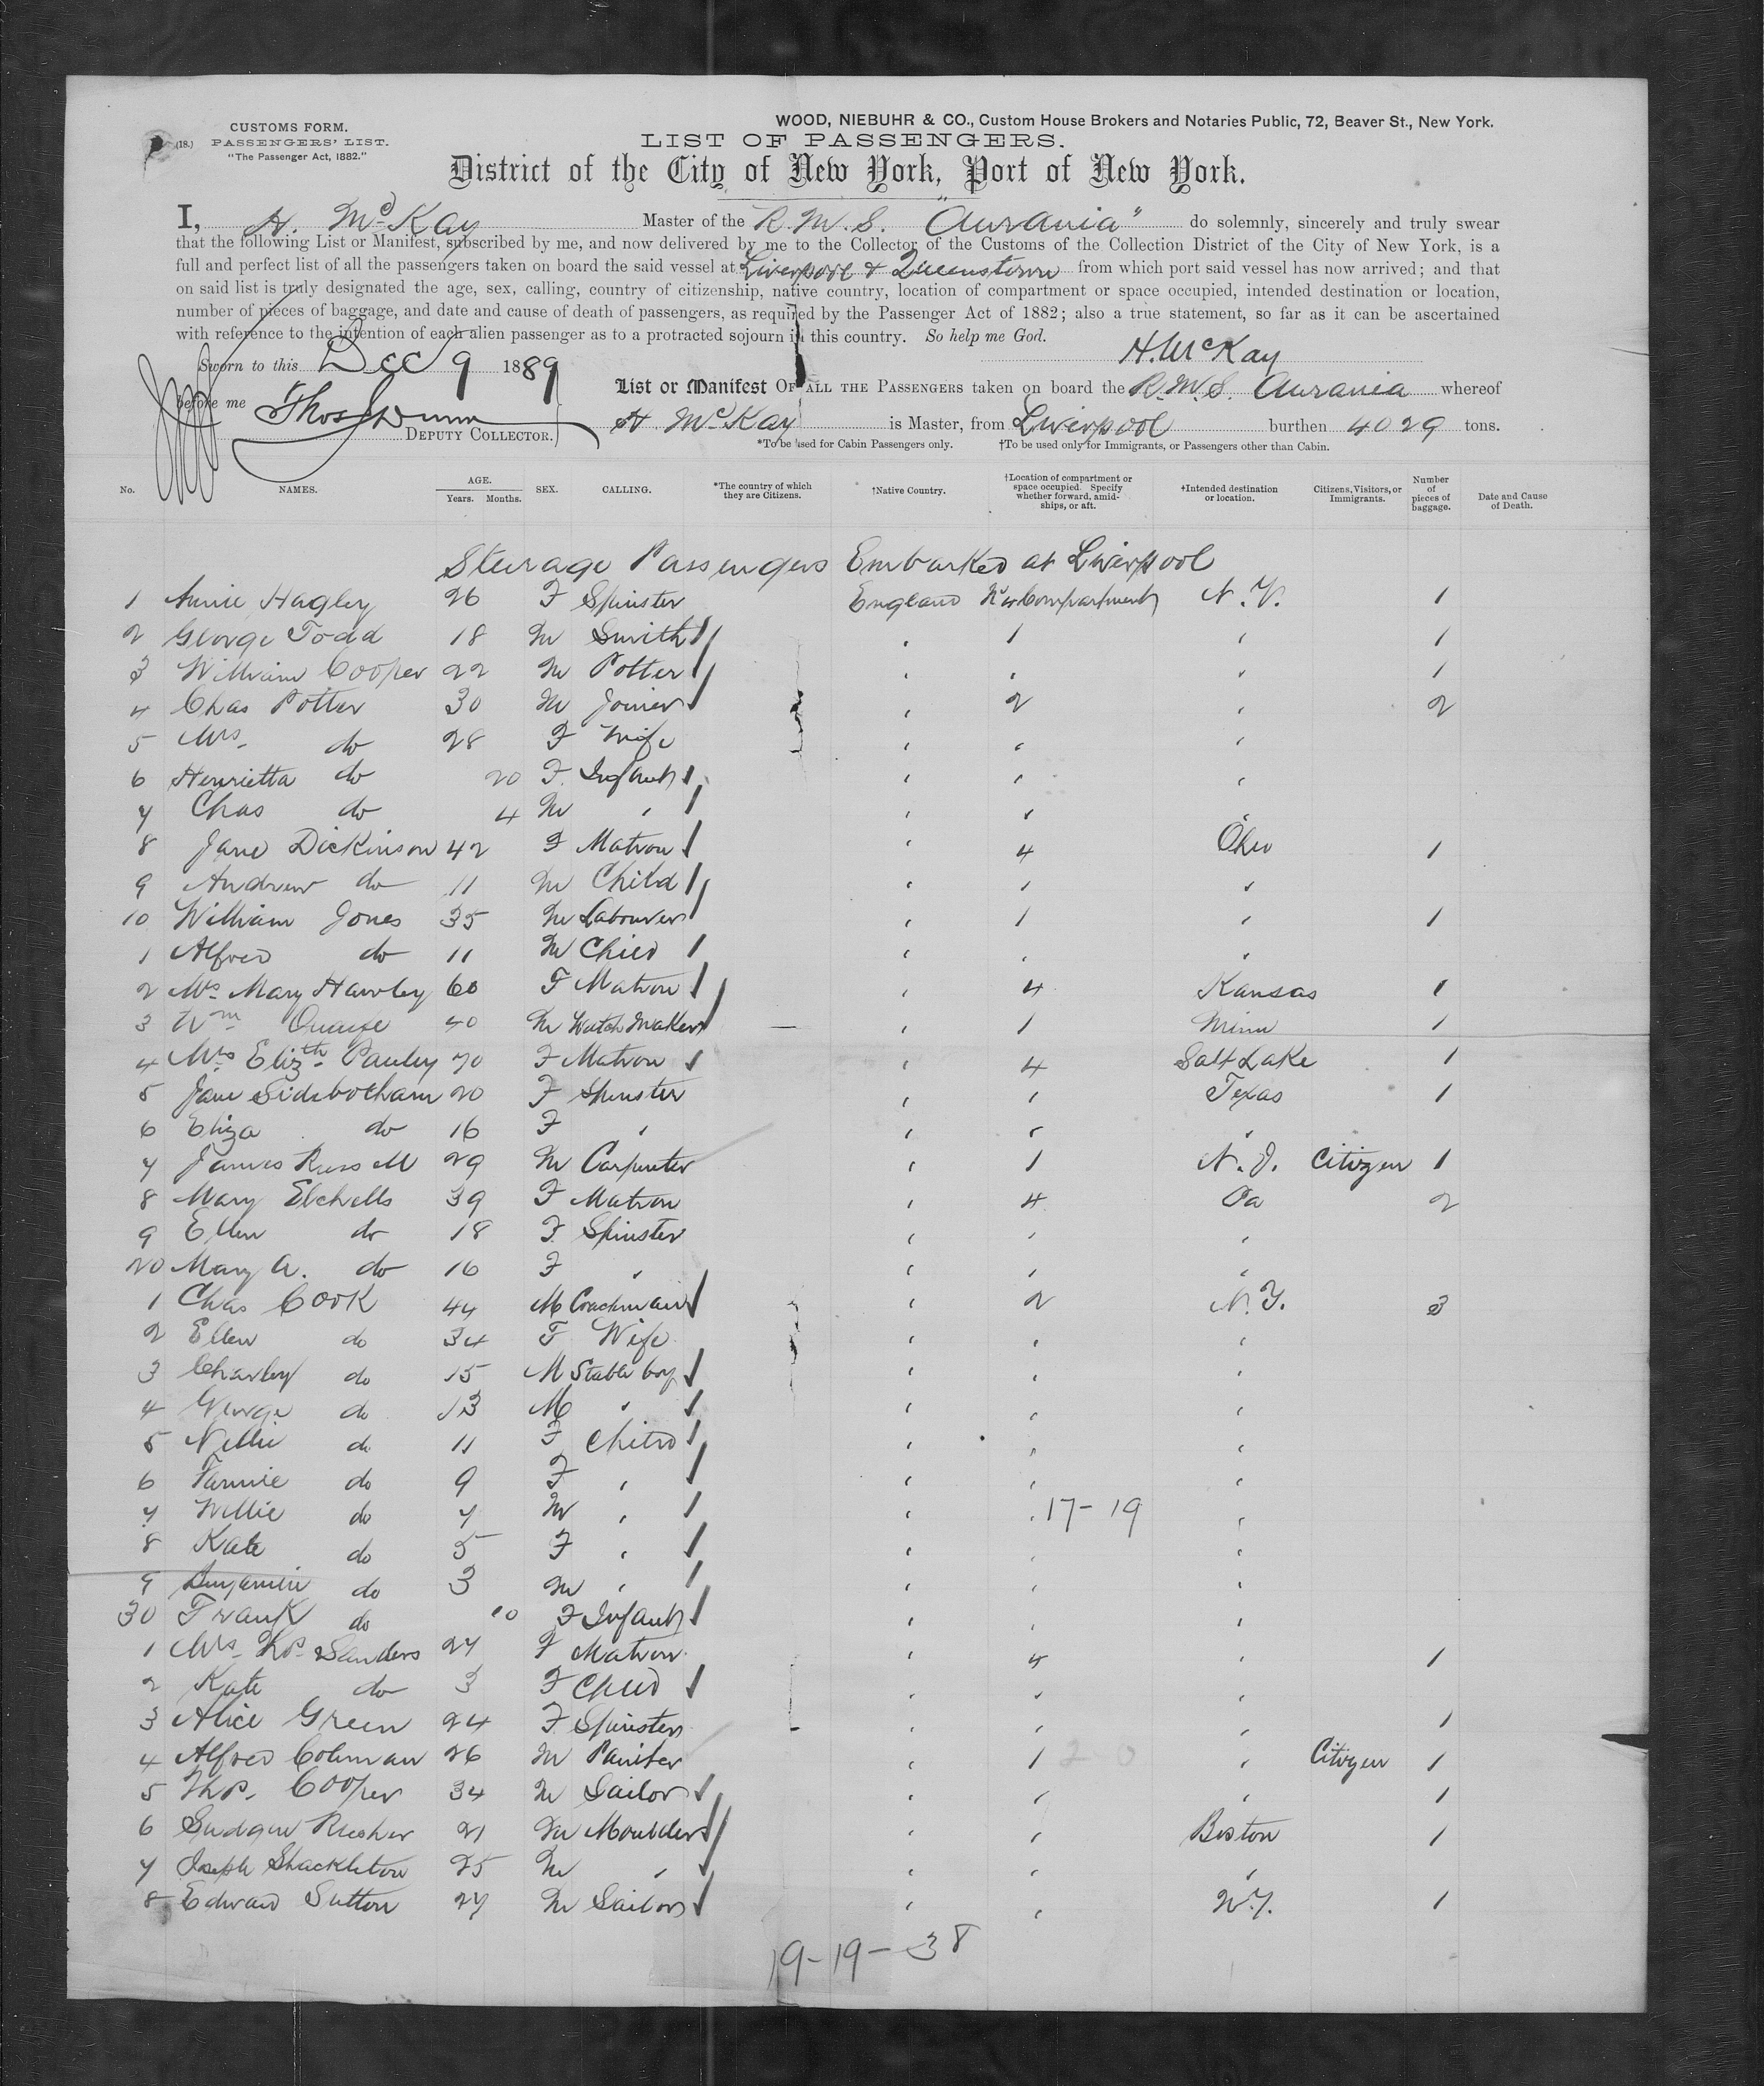 WOOD, NIEBUHR & CO., Custom House Brokers and Notaries Public, 72, Beaver St., New York.
CUSTOMS FORM.
(18.) PASSENGERS' LIST.
"The Passenger Act, 1882."
LIST OF PASSENGERS.
District of the City of New York, Port of New York.
I, H. McKay Master of the R.M.S. "Aurania" do solemnly, sincerely and truly swear
that the following List or Manifest, subscribed by me, and now delivered by me to the Collector of the Customs of the Collection District of the City of New York, is a
full and perfect list of all the passengers taken on board the said vessel at Liverpool & Queenstown from which port said vessel has now arrived; and that
on said list is truly designated the age, sex, calling, country of citizenship, native country, location of compartment or space occupied, intended destination or location,
number of pieces of baggage, and date and cause of death of passengers, as required by the Passenger Act of 1882; also a true statement, so far as it can be ascertained
with reference to the intention of each alien passenger as to a protracted sojourn in this country. So help me God.
H. McKay
Sworn to this Dec 9 1889
before me Thos Dunn
DEPUTY COLLECTOR.
List or Manifest OF ALL THE PASSENGERS taken on board the R.M.S. Aurania whereof
H McKay is Master, from Liverpool burthen 4029 tons.
*To be used for Cabin Passengers only. †To be used only for Immigrants, or Passengers other than Cabin.
No. NAMES. AGE. Years. Months. SEX. CALLING. *The country of which they are Citizens. †Native Country. †Location of compartment or space occupied. Specify whether forward, amidships, or aft. †Intended destination or location. Citizens, Visitors, or Immigrants. Number of pieces of baggage. Date and Cause of Death.
Steerage Passengers Embarked at Liverpool
1 Annie Hagley 26 F Spinster England No 4 Compartment N.Y. 1
2 George Todd 18 M Smith " 1 " 1
3 William Cooper 22 M Potter " " " 1
4 Chas Potter 30 M Joiner " 2 " 2
5 Mrs do 28 F Wife " " "
6 Henrietta do 20 F Infant " " "
7 Chas do 4 M " " " "
8 Jane Dickinson 42 F Matron " 4 Ohio 1
9 Andrew do 11 M Child " 1 "
10 William Jones 35 M Labourer " 1 " 1
1 Alfred do 11 M Child " " "
2 Mrs Mary Hawley 60 F Matron " 4 Kansas 1
3 Wm Quaife 40 M Watch Maker " 1 Minn 1
4 Mrs Elizth Pauley 70 F Matron " 4 Salt Lake 1
5 Jane Sidebotham 20 F Spinster " " Texas 1
6 Eliza do 16 F " " " "
7 James Russell 29 M Carpenter " 1 N.J. Citizen 1
8 Mary Etchells 39 F Matron " 4 Pa 2
9 Ellen do 18 F Spinster " " "
20 Mary A. do 16 F " " " "
1 Chas Cook 44 M Coachman " 2 N.Y. 3
2 Ellen do 34 F Wife " " "
3 Charley do 15 M Stable boy " " "
4 George do 13 M " " " "
5 Nellie do 11 F Child " " "
6 Fannie do 9 F " " " "
7 Willie do 7 M " " " 17-19 "
8 Kate do 5 F " " " "
9 Benjamin do 3 M " " " "
30 Frank do 10 F Infant " " "
1 Mrs Thos Sanders 27 F Matron " 4 " 1
2 Kate do 3 F Child " " "
3 Alice Green 24 F Spinster " " " 1
4 Alfred Colman 26 M Painter " 1 20 " Citizen 1
5 Thos. Cooper 34 M Sailor " " " 1
6 M Moulder 21 " " Boston 1
7 Joseph Shackleton 25 M " " " "
8 Edward Sutton 27 M Sailor " " N.Y. 1
19-19-38